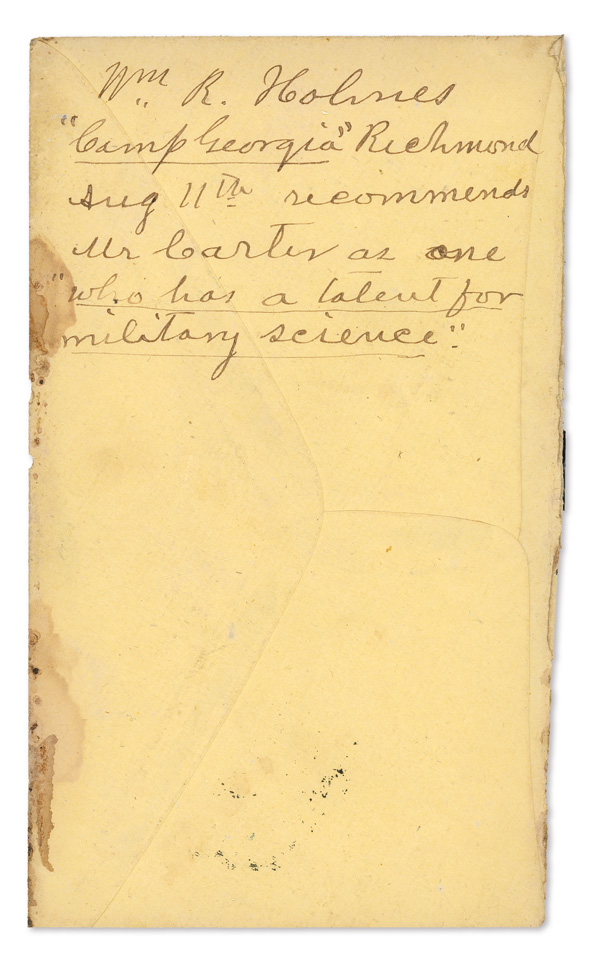 Wm R. Holmes
"Camp Georgia" Richmond
Aug 11th recommends
Mr Carter as one
"who has a talent for
military science".